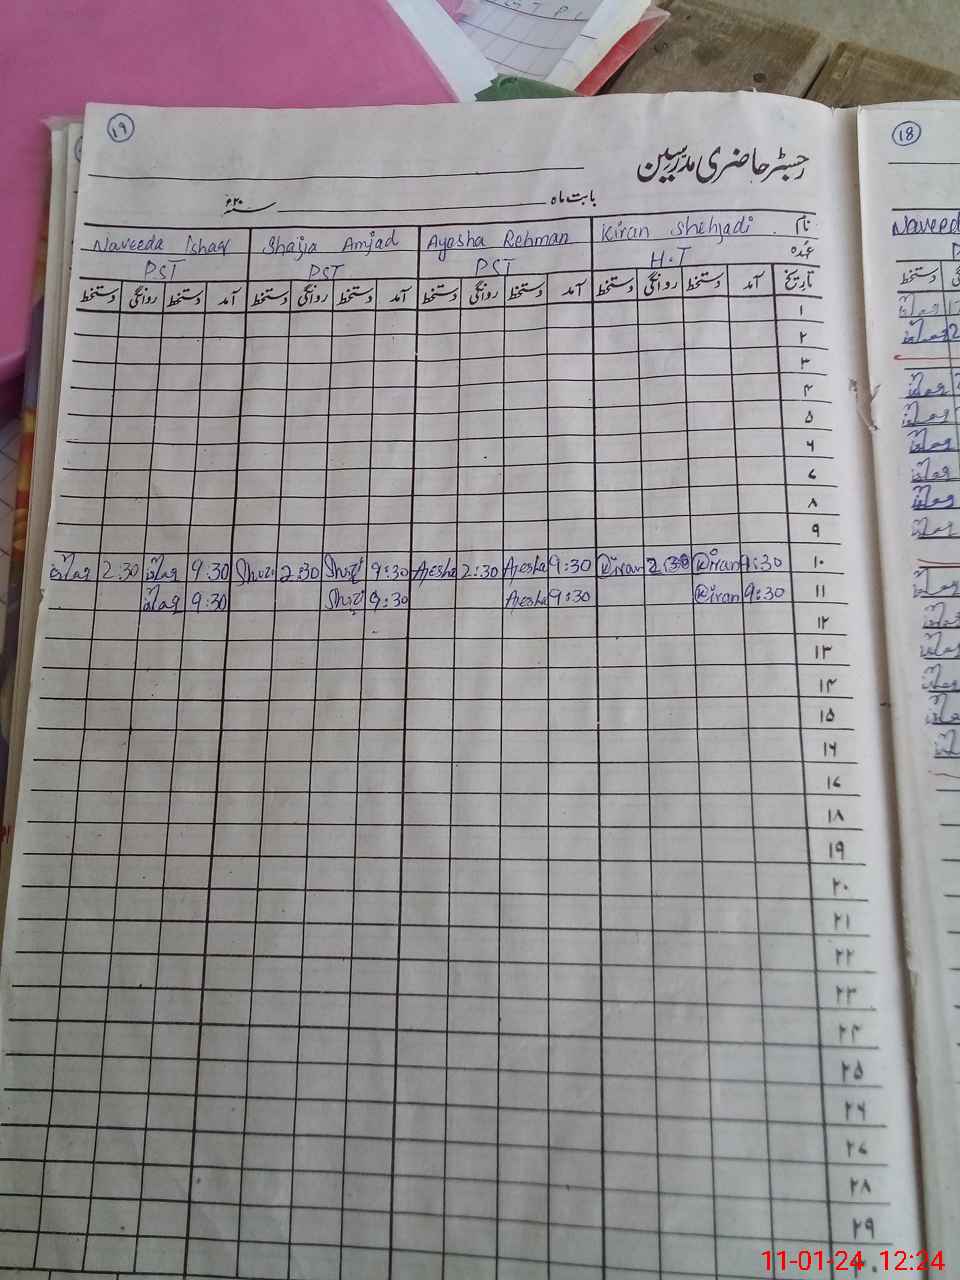 ۱۹
رجسٹر حاضری مدرسین
بابت ماہ ۲۰ء سنہ
نام Kiran Shehjadi Ayesha Rehman Shazja Amjad Naveeda Ishaq
عہدہ H.T PST PST PST
تاریخ آمد دستخط روانگی دستخط آمد دستخط روانگی دستخط آمد دستخط روانگی دستخط آمد دستخط روانگی دستخط
۱
۲
۳
۴
۵
۶
۷
۸
۹
۱۰ 9:30 Kiran 2:30 Kiran 9:30 Ayesha 2:30 Ayesha 9:30 2:30 9:30 2:30
۱۱ 9:30 Kiran 9:30 Ayesha 9:30 9:30
۱۲
۱۳
۱۴
۱۵
۱۶
۱۷
۱۸
۱۹
۲۰
۲۱
۲۲
۲۳
۲۴
۲۵
۲۶
۲۷
۲۸
۲۹
18
Naveed
دستخط
11-01-24 12:24